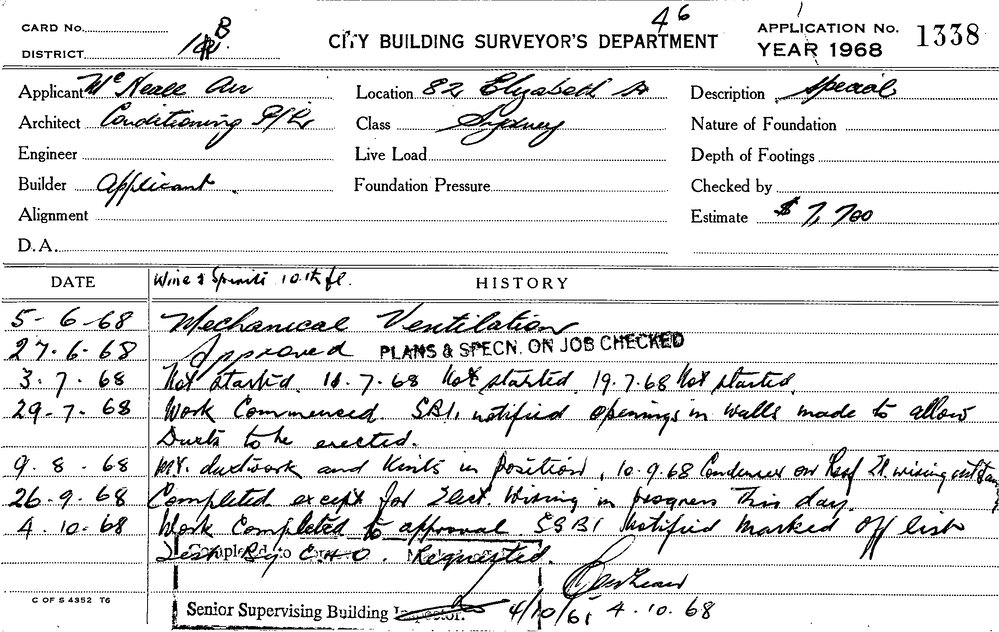 46
CARD No.
B
DISTRICT
CITY BUILDING SURVEYOR'S DEPARTMENT
APPLICATION No. 1338
YEAR 1968
Applicant McNeall Air Location 82 Elizabeth St Description Special
Architect Conditioning P/L Class Sydney Nature of Foundation
Engineer Live Load Depth of Footings
Builder Applicant. Foundation Pressure Checked by
Alignment Estimate $ 7,700
D.A.
DATE Wine & Spirits 10th fl. HISTORY
5-6-68 Mechanical Ventilation
27-6-68 Approved PLANS & SPECN. ON JOB CHECKED
3.7.68 Not started. 11.7.68 Not started. 19.7.68 Not started
29.7.68 Work Commenced. SBI. notified openings in walls made to allow
Ducts to be erected.
9.8.68 ductwork and Units in position, 10.9.68 Condenser on Roof El. wiring
26.9.68 Completed except for Elect. Wiring in progress This day.
4.10.68 Work Completed to approval SSBI Notified Marked Off list
By C.H.O. Requested.
Completed to
4/10/68 4.10.68
Senior Supervising Building Inspector.
C OF S 4352 T6